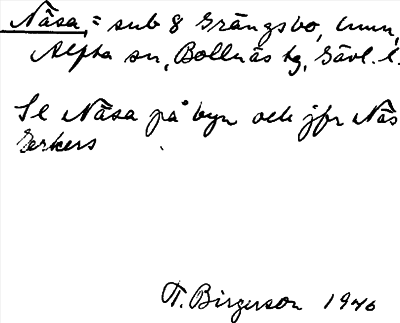 Näsa, = sub 8 Grängsbo, hmn,
Alfta sn, Bollnäs tg, Gävl. l.
Se Näsa på byn och jfr Näs
Gerkers
T. Birgerson 1940